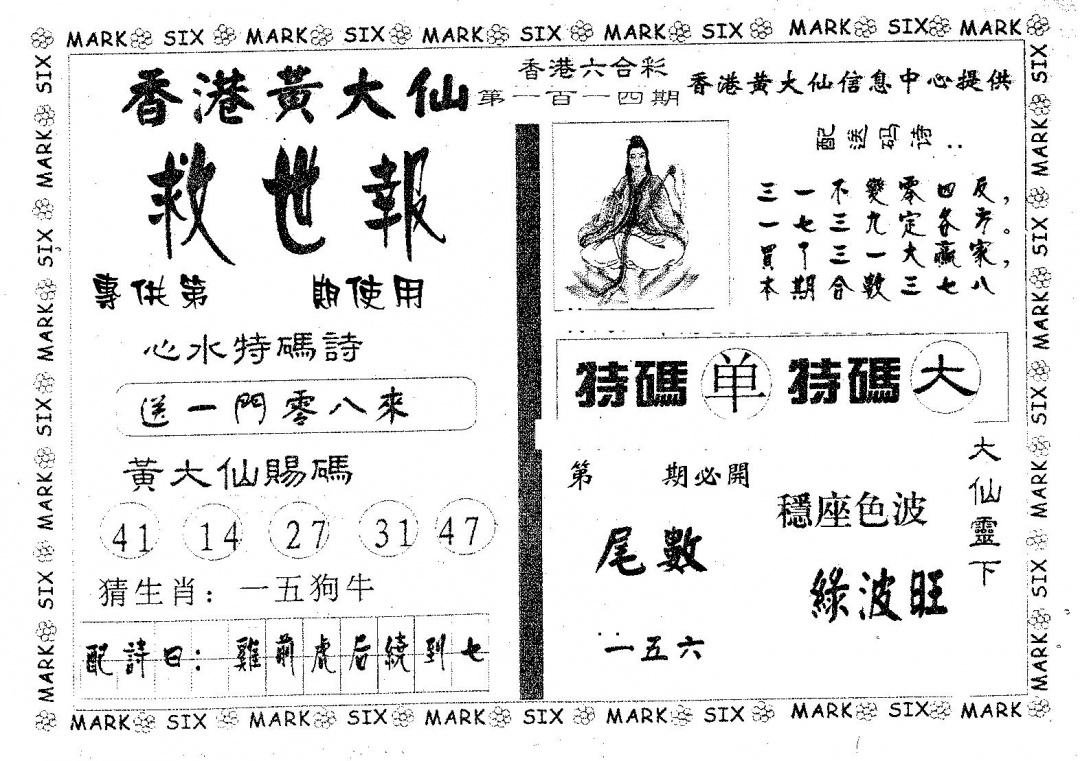 MARK SIX MARK SIX MARK SIX MARK SIX MARK SIX MARK
香港黃大仙
香港六合彩
第一百一四期
香港黃大仙信息中心提供
救世報
專供第 期使用
心水特碼詩
送一門零八來
黃大仙賜碼
41 14 27 31 47
猜生肖：一五狗牛
配詩曰：雞前虎后繞到七
配送码诗：
三一不變零四反，
一七三九定各方。
買了三一大贏家，
本期合數三七八
特碼 单 特碼 大
第 期必開
尾數
一五六
穩座色波
綠波旺
大仙靈下
MARK SIX MARK SIX MARK SIX MARK SIX MARK SIX MARK
SIX MARK SIX MARK SIX MARK SIX MARK
MARK SIX MARK SIX MARK SIX MARK SIX